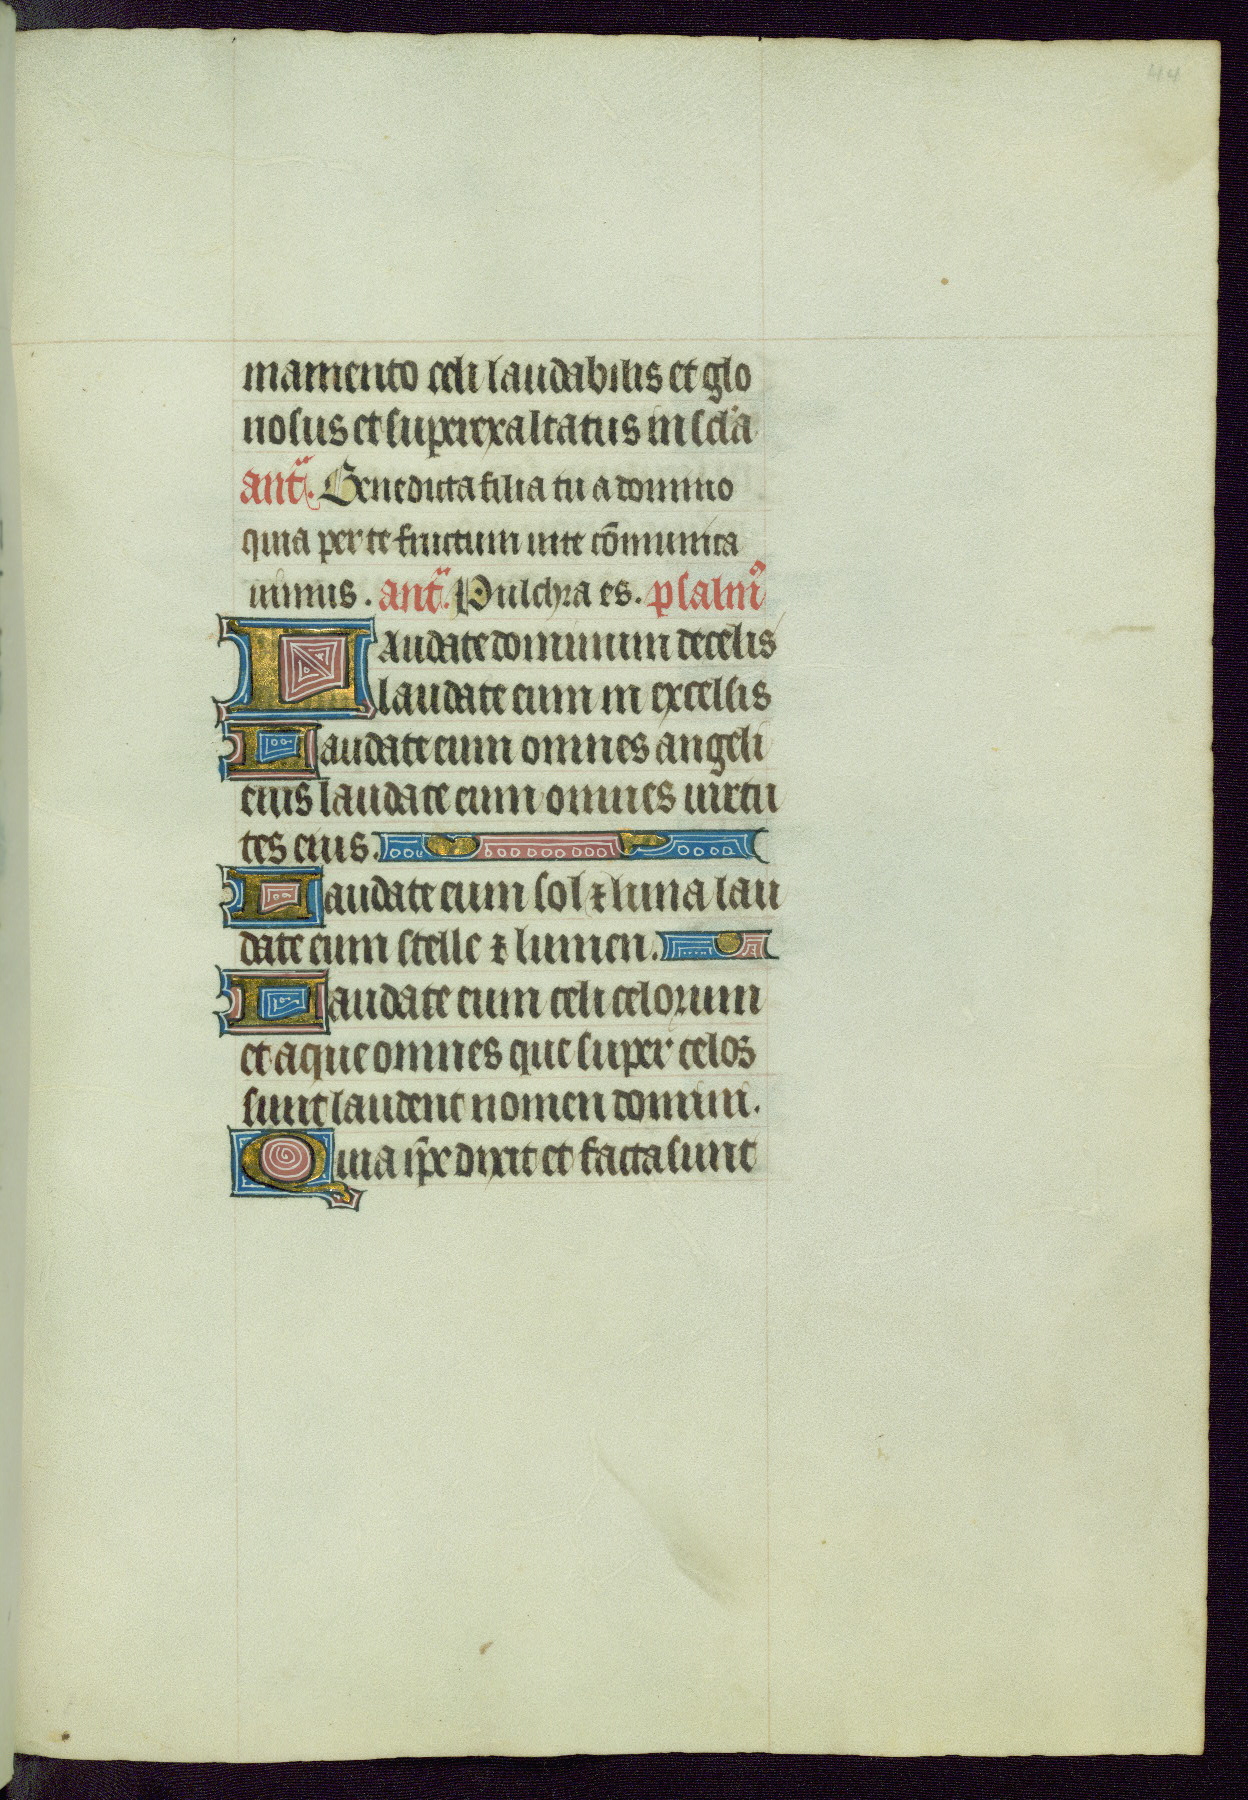 44
mamento celi laudabilis et glo
riosus et superexaltatus in scl'a
ant. Benedicta filia tu a domino
quia per te fructum uite cōmunica
uimus. ant. Pulchra es. psalm9
Laudate dominum de celis
laudate eum in excelsis
Laudate eum omnes angeli
eius laudate eum omnes uirtu
tes eius.
Laudate eum sol ⁊ luna lau
date eum stelle ⁊ lumen.
Laudate eum celi celorum
et aque omnes que super celos
sunt laudent nomen domini.
Quia ip̄e dixit et facta sunt